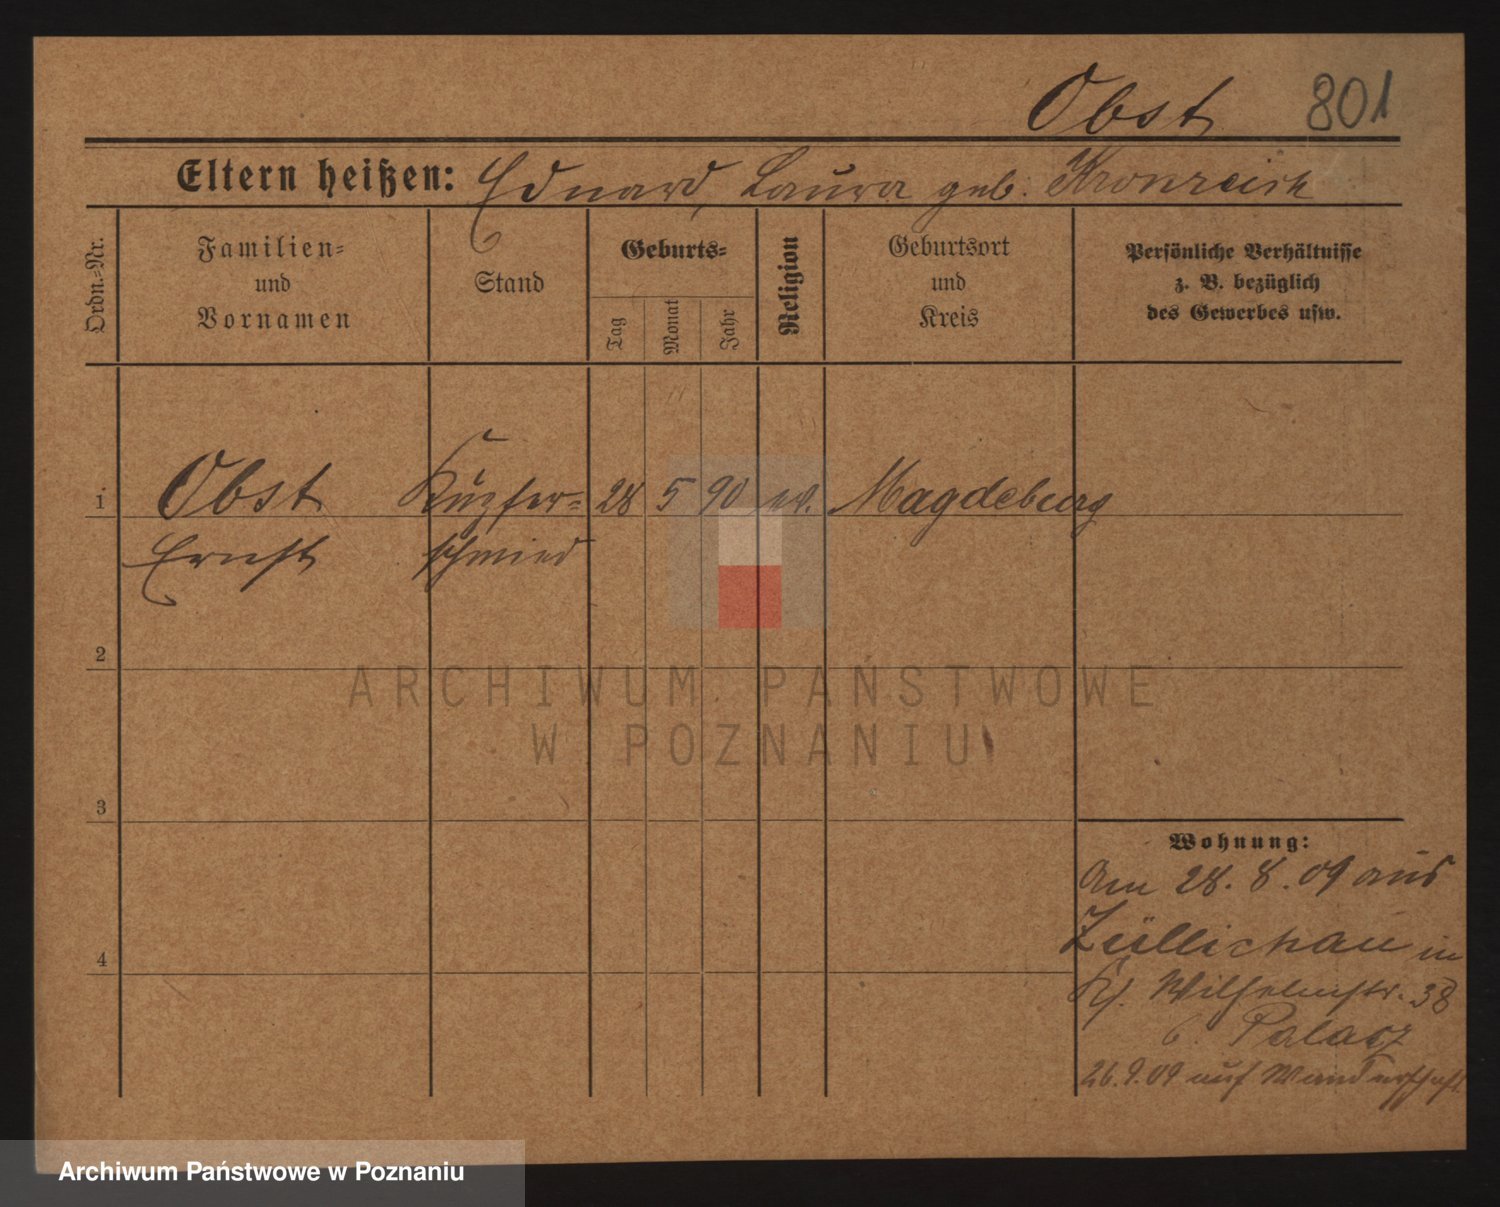 Obst 801
Eltern heißen: Eduard, Laura geb. Kronreich
Ordn.=Nr.
Familien=
und
Vornamen
Stand
Geburts=
Tag
Monat
Jahr
Religion
Geburtsort
und
Kreis
Persönliche Verhältnisse
z. B. bezüglich
des Gewerbes usw.
1 Obst Kupfer= 28 5 90 ev. Magdeburg
Ernst schmied
2
ARCHIWUM PAŃSTWOWE
W POZNANIU
3
Wohnung:
Am 28. 8. 09 aus
Züllichau in
Wilhelmstr. 38
b. Palacz
4
26.9.09 auf Wanderschaft
Archiwum Państwowe w Poznaniu